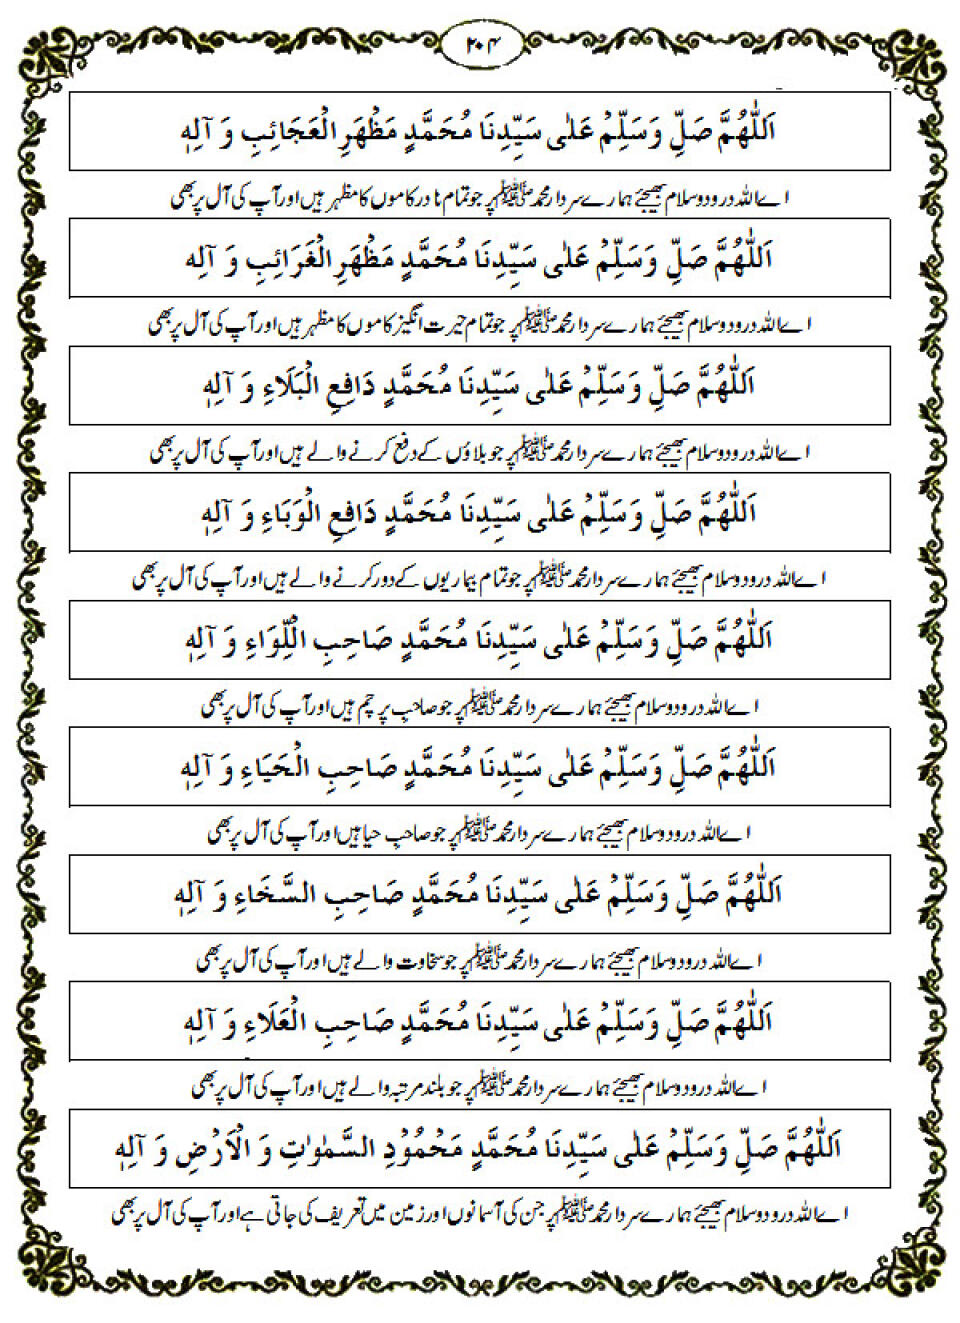 ۲۰۴
اَللّٰهُمَّ صَلِّ وَسَلِّمْ عَلٰى سَيِّدِنَا مُحَمَّدٍ مَظْهَرِ الْعَجَائِبِ وَ آلِهٖ
اے اللہ درود و سلام بھیجئے ہمارے سردار محمد ﷺ پر جو تمام نادر کاموں کا مظہر ہیں اور آپ کی آل پر بھی
اَللّٰهُمَّ صَلِّ وَسَلِّمْ عَلٰى سَيِّدِنَا مُحَمَّدٍ مَظْهَرِ الْغَرَائِبِ وَ آلِهٖ
اے اللہ درود و سلام بھیجئے ہمارے سردار محمد ﷺ پر جو تمام حیرت انگیز کاموں کا مظہر ہیں اور آپ کی آل پر بھی
اَللّٰهُمَّ صَلِّ وَسَلِّمْ عَلٰى سَيِّدِنَا مُحَمَّدٍ دَافِعِ الْبَلَاءِ وَ آلِهٖ
اے اللہ درود و سلام بھیجئے ہمارے سردار محمد ﷺ پر جو بلاؤں کے دفع کرنے والے ہیں اور آپ کی آل پر بھی
اَللّٰهُمَّ صَلِّ وَسَلِّمْ عَلٰى سَيِّدِنَا مُحَمَّدٍ دَافِعِ الْوَبَاءِ وَ آلِهٖ
اے اللہ درود و سلام بھیجئے ہمارے سردار محمد ﷺ پر جو تمام بیماریوں کے دور کرنے والے ہیں اور آپ کی آل پر بھی
اَللّٰهُمَّ صَلِّ وَسَلِّمْ عَلٰى سَيِّدِنَا مُحَمَّدٍ صَاحِبِ الْلِّوَاءِ وَ آلِهٖ
اے اللہ درود و سلام بھیجئے ہمارے سردار محمد ﷺ پر جو صاحبِ پرچم ہیں اور آپ کی آل پر بھی
اَللّٰهُمَّ صَلِّ وَسَلِّمْ عَلٰى سَيِّدِنَا مُحَمَّدٍ صَاحِبِ الْحَيَاءِ وَ آلِهٖ
اے اللہ درود و سلام بھیجئے ہمارے سردار محمد ﷺ پر جو صاحبِ حیا ہیں اور آپ کی آل پر بھی
اَللّٰهُمَّ صَلِّ وَسَلِّمْ عَلٰى سَيِّدِنَا مُحَمَّدٍ صَاحِبِ السَّخَاءِ وَ آلِهٖ
اے اللہ درود و سلام بھیجئے ہمارے سردار محمد ﷺ پر جو سخاوت والے ہیں اور آپ کی آل پر بھی
اَللّٰهُمَّ صَلِّ وَسَلِّمْ عَلٰى سَيِّدِنَا مُحَمَّدٍ صَاحِبِ الْعَلَاءِ وَ آلِهٖ
اے اللہ درود و سلام بھیجئے ہمارے سردار محمد ﷺ پر جو بلند مرتبہ والے ہیں اور آپ کی آل پر بھی
اَللّٰهُمَّ صَلِّ وَسَلِّمْ عَلٰى سَيِّدِنَا مُحَمَّدٍ مَحْمُوْدِ السَّمٰوٰتِ وَ الْاَرْضِ وَ آلِهٖ
اے اللہ درود و سلام بھیجئے ہمارے سردار محمد ﷺ پر جن کی آسمانوں اور زمین میں تعریف کی جاتی ہے اور آپ کی آل پر بھی